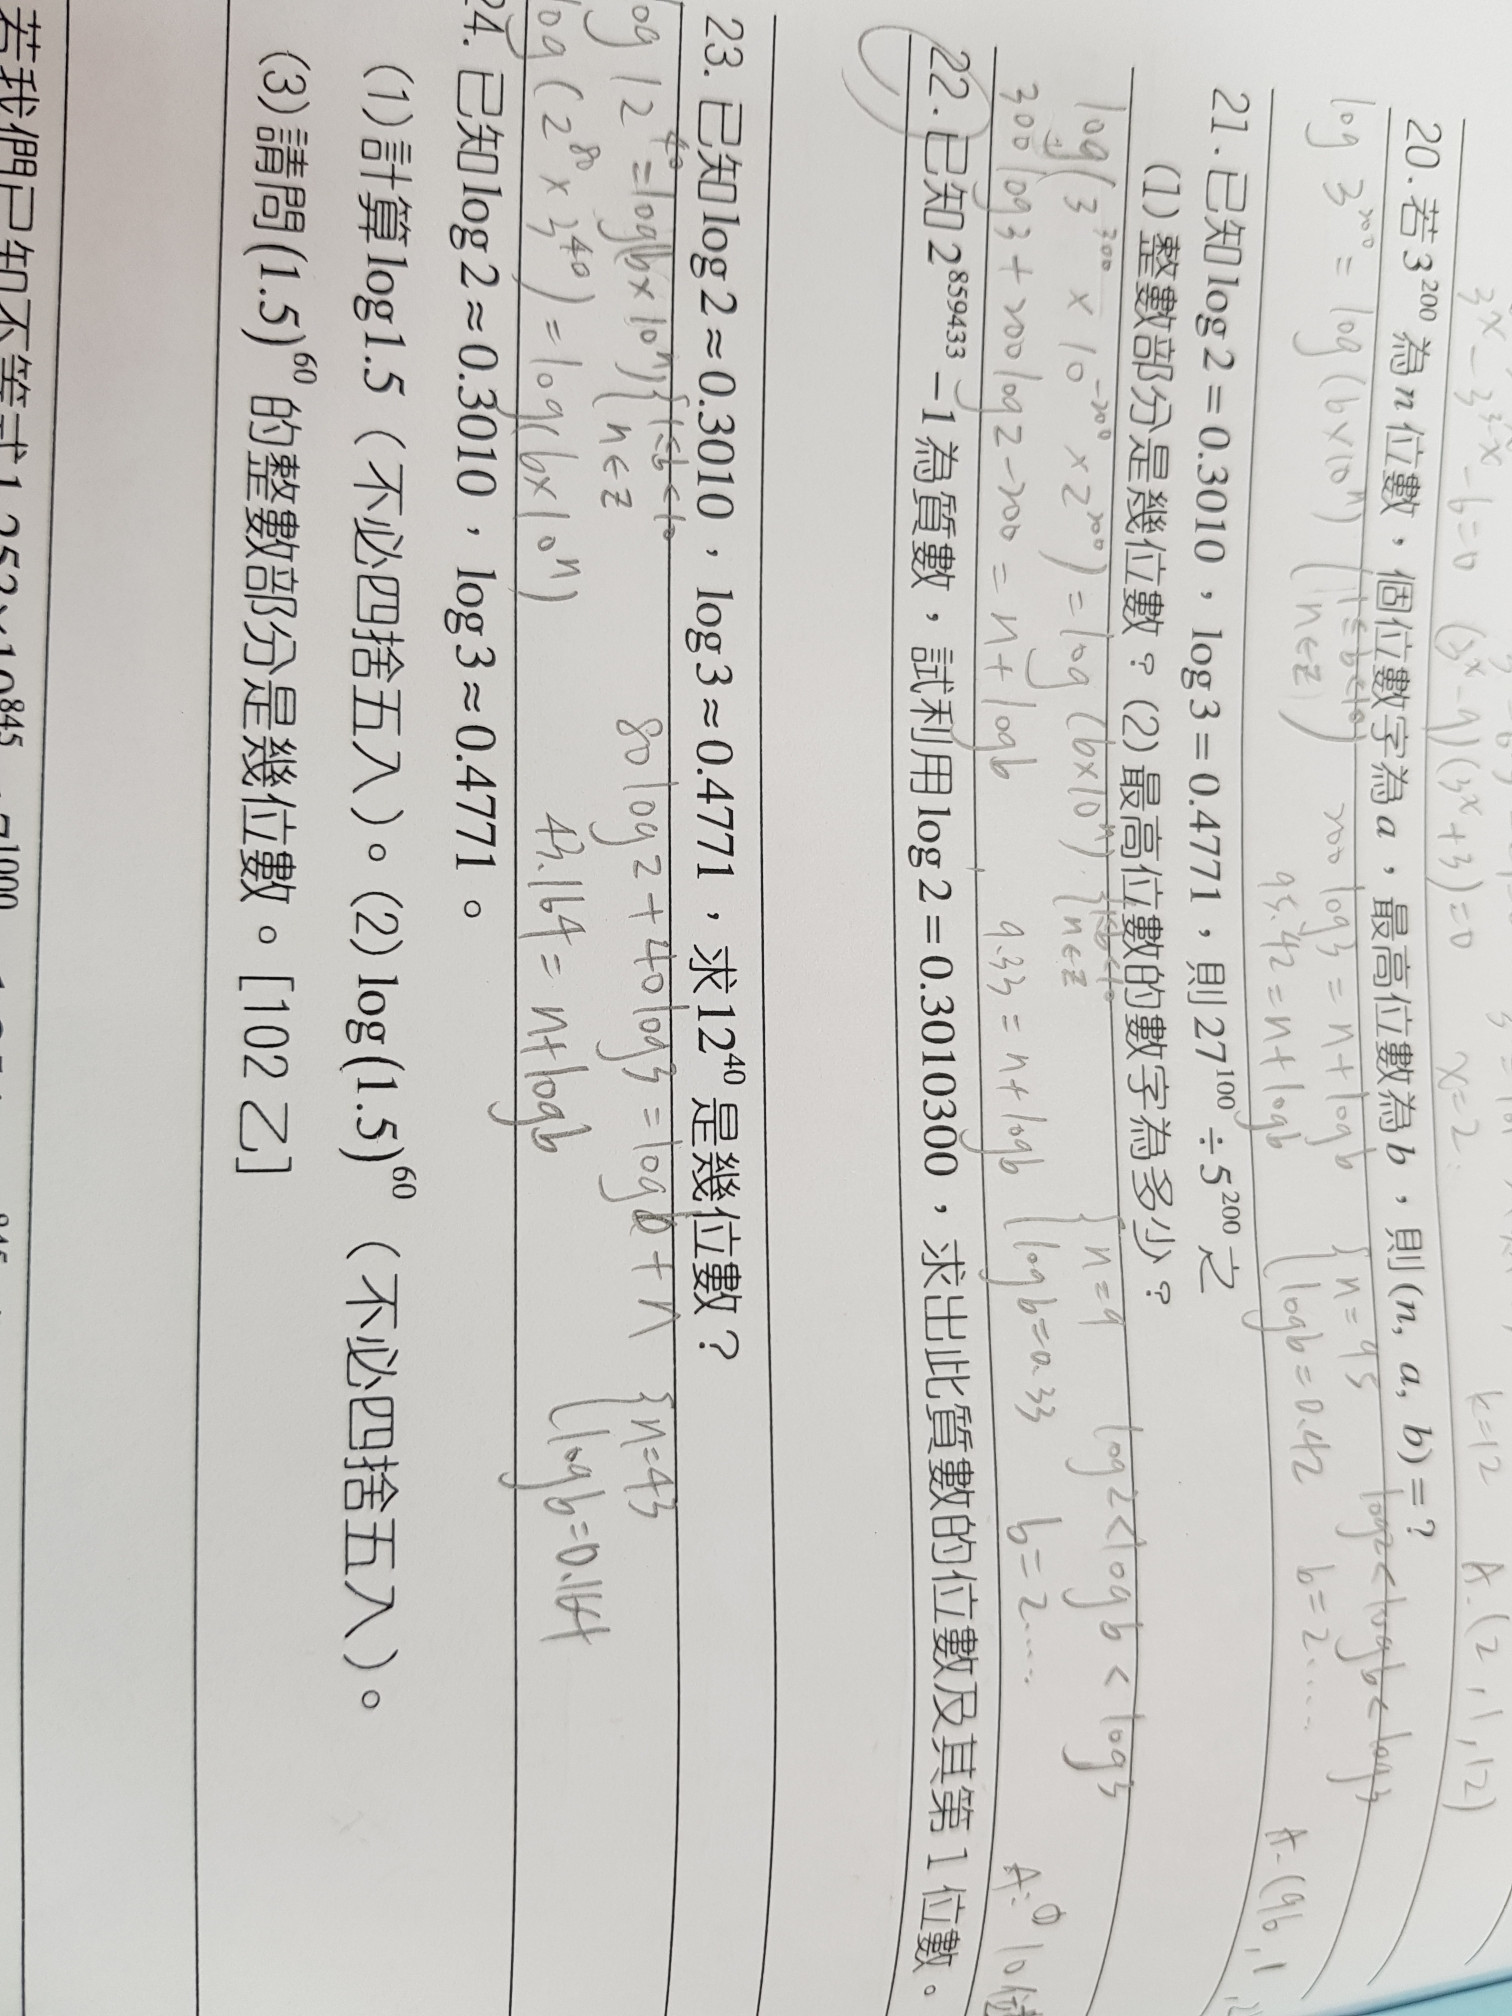 3^x - 3^{2-x} - 6 = 0 (3^x - 9)(3^x + 3) = 0 x = 2 k = 12 A. (2, 1, 12)
20. 若 3^{200} 為 n 位數，個位數字為 a，最高位數為 b，則 (n, a, b) = ?
log 3^{200} = log (b × 10^n) { 1 ≤ b < 10 n ∈ Z 200 log 3 = n + log b { n = 95 log 2 < log b < log 3
95.42 = n + log b log b = 0.42 b = 2..... A. (96, 1
21. 已知 log 2 = 0.3010，log 3 = 0.4771，則 27^{100} ÷ 5^{200} 之
(1) 整數部分是幾位數？(2) 最高位數的數字為多少？
log (3^{300} × 10^{-200} × 2^{200}) = log (b × 10^n) { 1 ≤ b < 10 n ∈ Z { n = 9 log 2 < log b < log 3
300 log 3 + 200 log 2 - 200 = n + log b 9.33 = n + log b log b = 0.33 b = 2..... A: ① 10位
22. 已知 2^{859433} - 1 為質數，試利用 log 2 = 0.3010300，求出此質數的位數及其第 1 位數。
23. 已知 log 2 ≈ 0.3010，log 3 ≈ 0.4771，求 12^{40} 是幾位數？
log 12^{40} = log (b × 10^n) { 1 ≤ b < 10 n ∈ Z 80 log 2 + 40 log 3 = log b + n { n = 43
log (2^{80} × 3^{40}) = log (b × 10^n) 43.164 = n + log b log b = 0.164
24. 已知 log 2 ≈ 0.3010，log 3 ≈ 0.4771。
(1) 計算 log 1.5（不必四捨五入）。(2) log (1.5)^{60}（不必四捨五入）。
(3) 請問 (1.5)^{60} 的整數部分是幾位數。[102 乙]
若我們已知不等式